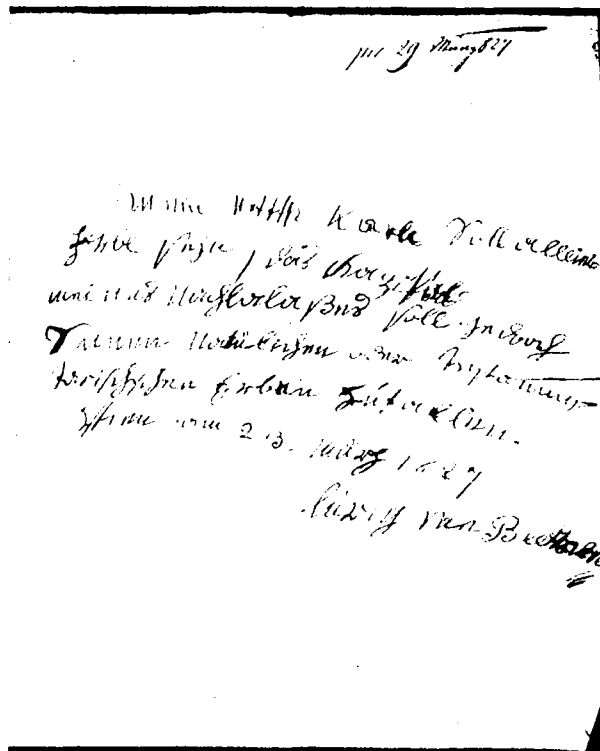 pr 29 März 827
Mein Neffe Karle Soll alleini
Erbe seyn, das Kapital
meines Nachlalaßes soll jedoch
Seinen Natürlichen oder testamen-
tarischschen Erben zufallen.
Wien am 23. März 1827
luwig van Beethoven